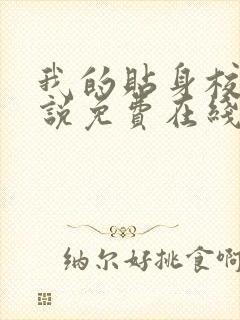 我的贴身校
説免费在綫
纳尔好挑食啊